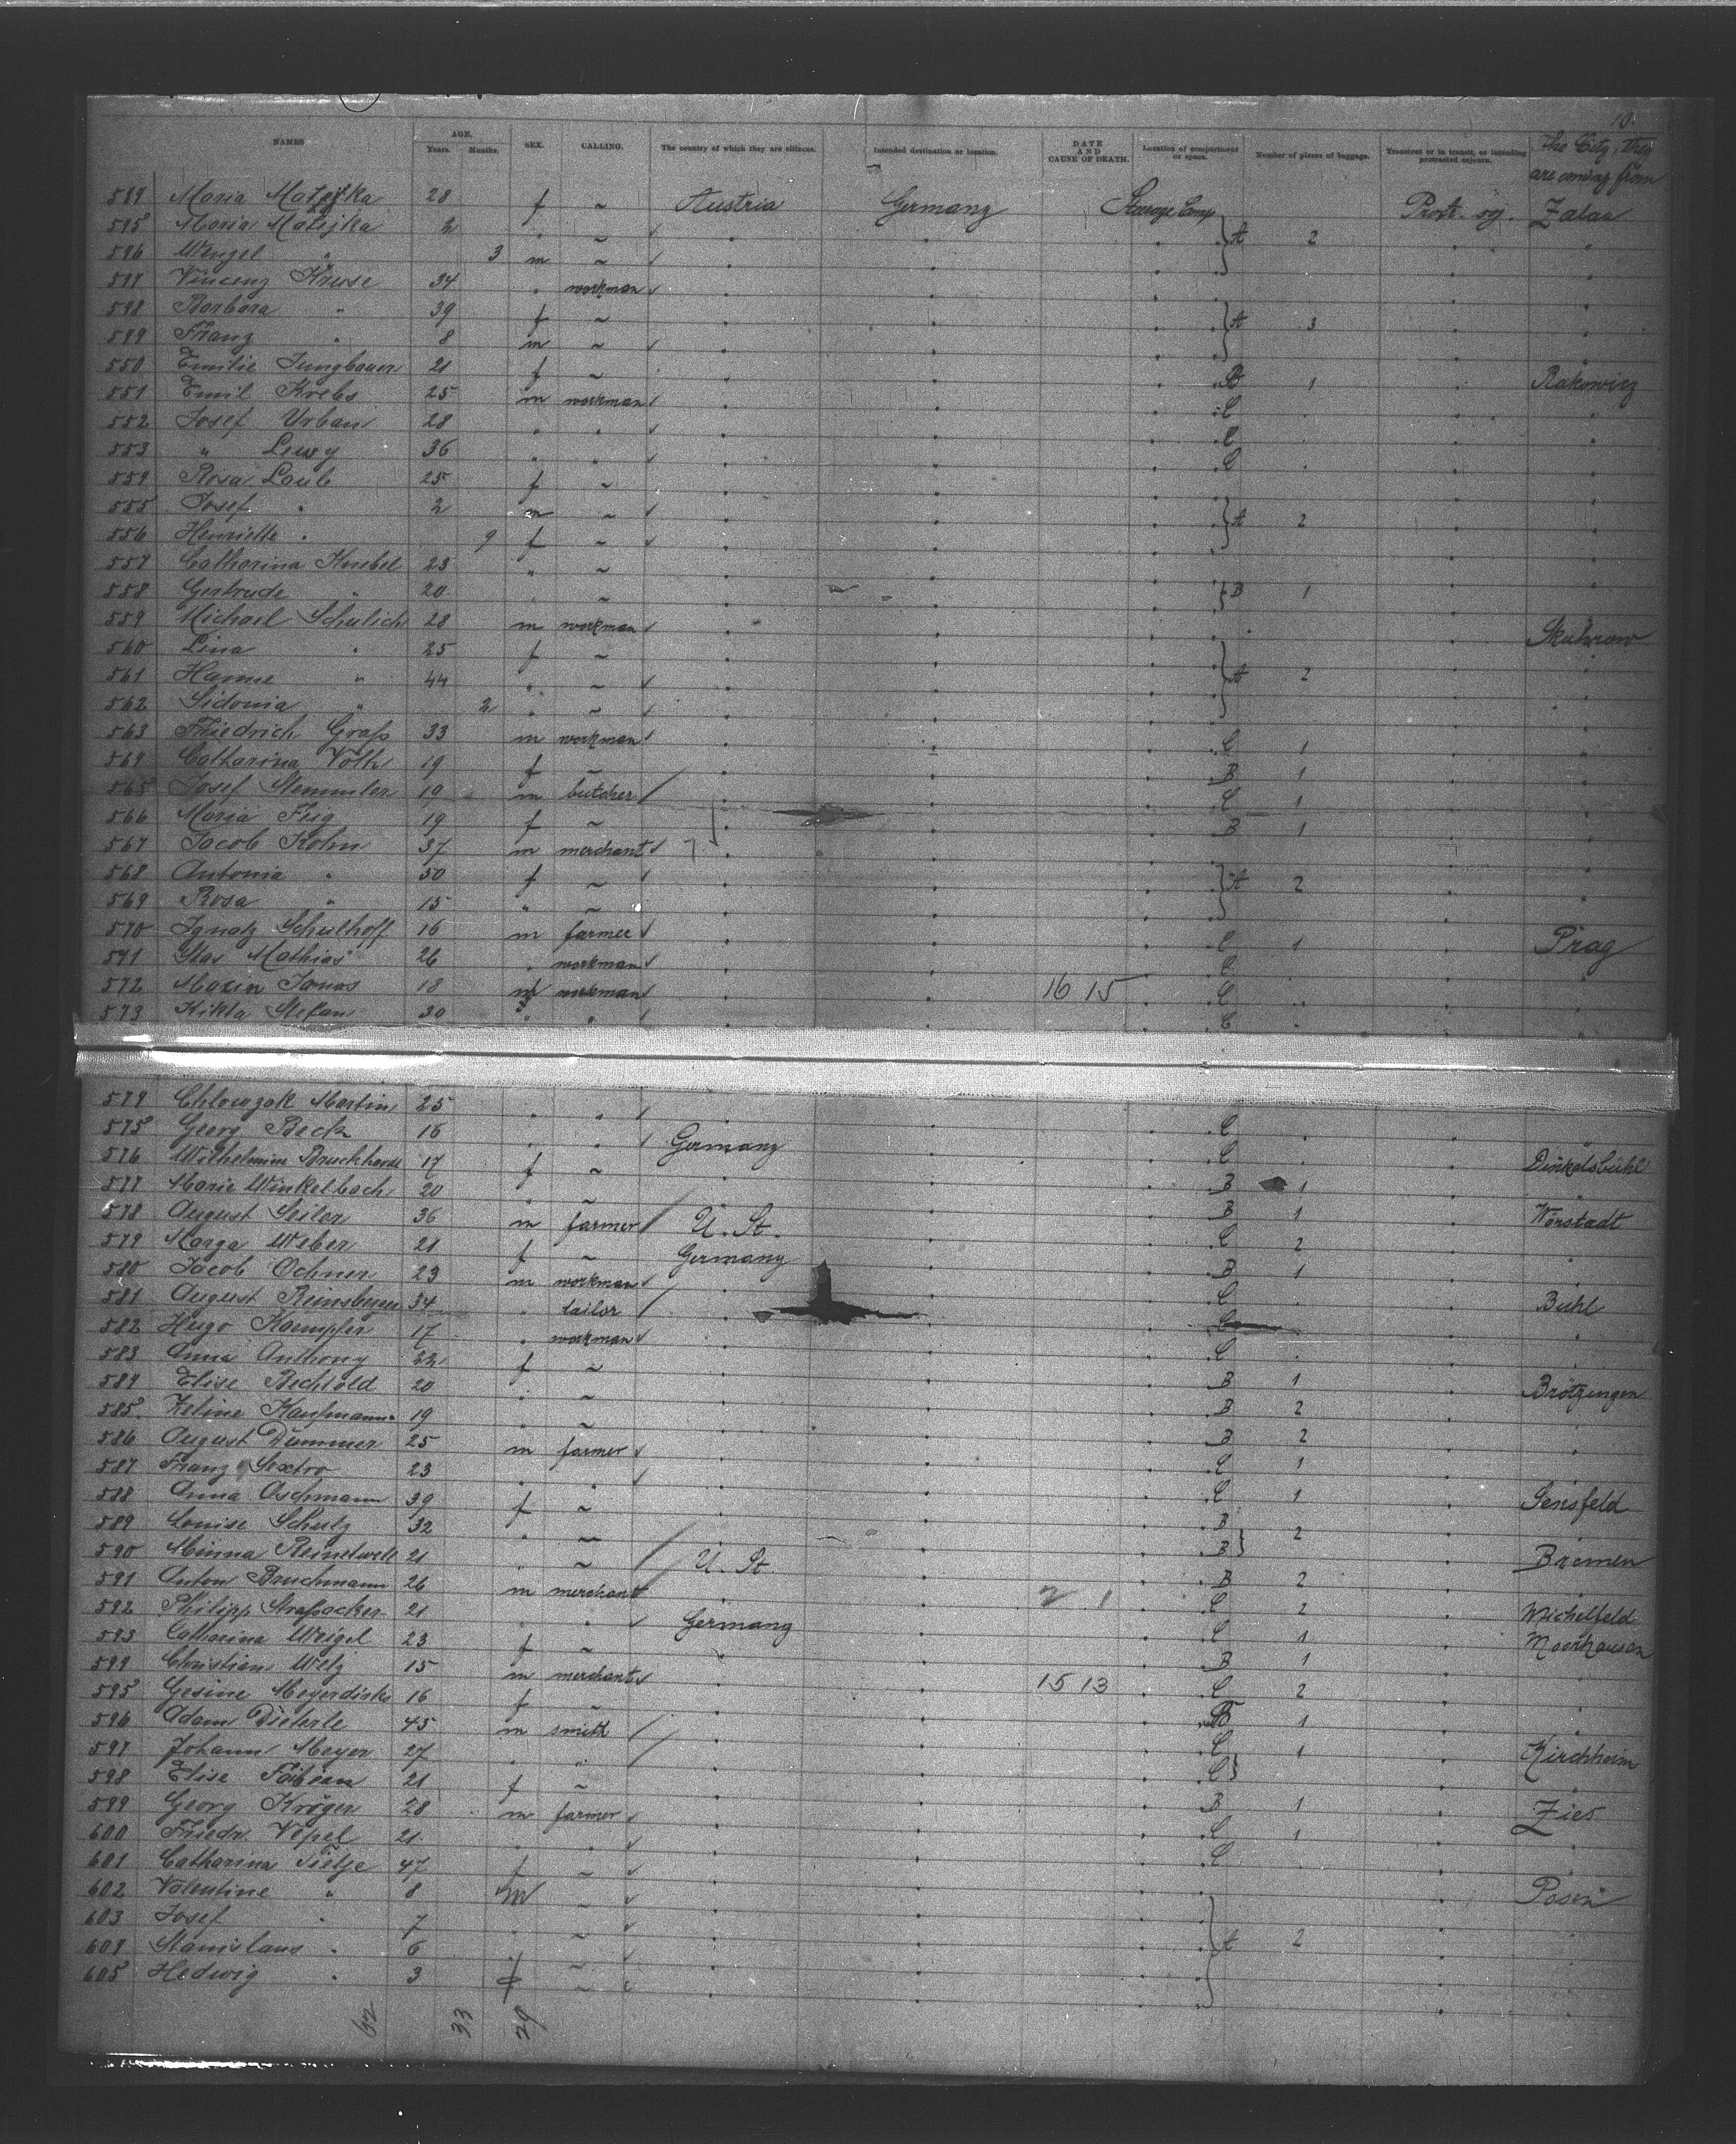 10.
NAMES AGE. Years. Months. SEX. CALLING. The country of which they are citizens. Intended destination or location. DATE AND CAUSE OF DEATH. Location of compartment or space. Number of pieces of baggage. Transient or in transit, or intending protracted sojourn. The City, they are coming from
544 Maria Matejka 28 f ~ Austria Germany Steerage Comp Protr. soj. Zalaa
545 Maria Matejka 2 " ~ A 2 "
546 Wenzel " 3 m ~ "
547 Vincenz Kruse 34 " workman "
548 Barbara " 39 f ~ A 3 "
549 Franz " 8 m ~ "
550 Emilie Jungbauer 21 f ~ A 1 Rakowicz
551 Emil Krebs 25 m workman C "
552 Josef Urban 28 " " C "
553 " Lewy 36 " " C "
554 Rosa Laub 25 f ~ "
555 Josef " 2 m ~ A 2 "
556 Henriette " 9 f ~ "
557 Catharina Knebel 23 " ~ "
558 Gertrude " 20 " ~ B 1 "
559 Michael Schulich 28 m workman Skuhrow
560 Lina " 25 f ~ "
561 Hanne " 44 " ~ A 2 "
562 Sidonia " 2 " ~ "
563 Friedrich Graß 33 m workman C 1 "
564 Catharina Voth 19 f ~ B 1 "
565 Josef Stemmler 19 m butcher C 1 "
566 Maria Fug 19 f ~ B 1 "
567 Jacob Kohn 37 m merchant "
568 Antonia " 50 f ~ A 2 "
569 Rosa " 15 " ~ "
570 Ignatz Schulhoff 16 m farmer C 1 Prag
571 Glas Mathias 26 " workman C "
572 Maxin Janos 18 m workman 16 15 C "
573 Kikta Stefan 30 " " C "
574 Chlowzak Martin 25 " " C "
575 Georg Beck 16 " " Germany C Dinkelsbühl
576 Wilhelmine Bruckhardt 17 f ~ B 1 "
577 Marie Winkelbach 20 " ~ B 1 Wörstadt
578 August Seiler 36 m farmer U. St. C 2 "
579 Marga Weber 21 f ~ Germany B 1 "
580 Jacob Ochner 23 m workman C Buhl
581 August Reinsberger 34 " tailor C "
582 Hugo Kaempfer 17 " workman C "
583 Anna Anthony 22 f ~ B 1 Brötzingen
584 Elise Bechtold 20 " ~ B 2 "
585 Zeline Kaufmann 19 " ~ B 2 "
586 August Dummer 25 m farmer C 1 "
587 Franz Sextro 23 " " C 1 Sensfeld
588 Anna Aschmann 39 f ~ B "
589 Louise Schulz 32 " ~ B 2 Bremen
590 Minna 21 " ~ U. St. B 2 "
591 Anton Bruchmann 26 m merchant 2 1 C 2 Michelfeld
592 Philipp Straßacker 21 " " Germany C 1 Moorhausen
593 Catharina Weigel 23 f ~ B 1 "
594 Christian Welz 15 m merchant 15 13 C 2 "
595 Gesine Meyerdirks 16 f ~ B 1 "
596 Adam Dieterle 45 m smith C 1 Kirchheim
597 Johann Meyer 27 " " C "
598 Elise Fabian 21 f ~ B 1 Zies
599 Georg Kröger 28 m farmer C 1 "
600 Friedr. Vepel 21 " " C "
601 Catharina Tietje 47 f ~ Posen
602 Valentine " 8 m ~ "
603 Josef " 7 " ~ "
604 Stanislaus " 6 " ~ A 2 "
605 Hedwig " 3 f ~ "
62 33 29